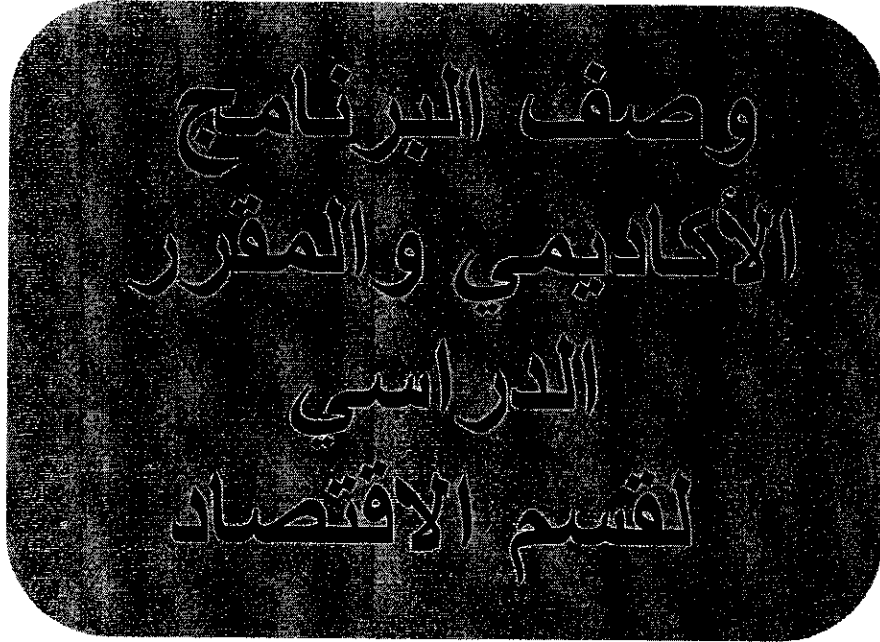 وصف البرنامج
الأكاديمي والمقرر
الدراسي
لقسم الاقتصاد